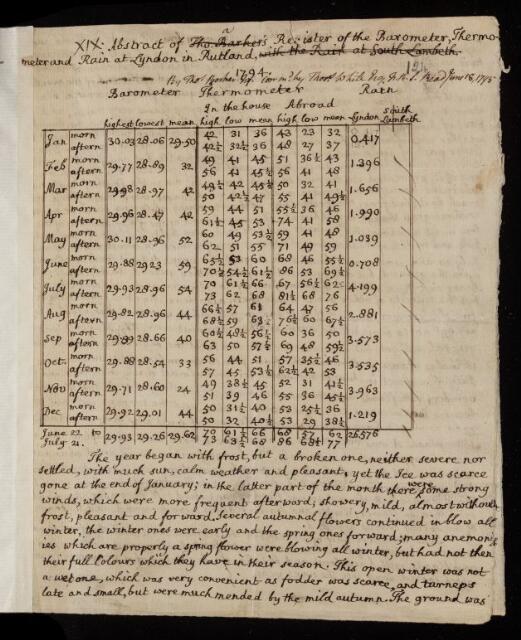 XIX. Abstract of a Tho. Barker's Register of the Barometer, Thermo-
meter and Rain at Lyndon in Rutland, with the Rain at South Lambeth.
1794.
By Thos. Barker Esq. Comm. by Thos. White Esq. F.R.S. Read June 18, 1795
Barometer Thermometer Rain
In the house Abroad
highest lowest mean high low mean high low mean Lyndon South Lambeth
Jan morn 30.03 28.06 29.50 42 31 36 43 23 32 0.417
aftern 42½ 32½ 36 48 27 37
Feb morn 29.77 28.89 32 49 41 45 51 36½ 43 1.396
aftern 56 41 45½ 56 41 48
Mar morn 29.98 28.97 42 49½ 42 45½ 50 32 41 1.656
aftern 50 42½ 47 55 41 49½
Apr morn 29.96 28.47 42 59 44 51 55½ 36 46 1.990
aftern 61½ 45 53 74 41 58
May morn 30.11 28.96 52 60 49 53½ 59 41 48 1.039
aftern 62 51 55 71 49 59
June morn 29.88 29.23 59 65½ 53 60 68 46 55½ 0.708
aftern 70½ 54½ 61½ 86 53 69½
July morn 29.93 28.96 54 70 61½ 66 67 56½ 62 4.199
aftern 73 62 68 81½ 68 76
Aug morn 29.82 28.96 44 66½ 57 61 64 47 56 2.881
aftern 68½ 59 63 76½ 60 67½
Sep morn 29.89 28.66 40 60½ 48½ 56 60 36 50 3.573
aftern 63 50 57½ 69 48 59½
Oct. morn 29.88 28.54 33 56 44 51 57 35½ 46 3.535
aftern 57 45 53½ 62½ 42 53
Nov morn 29.71 28.60 24 49 38½ 45 52 31 41½ 3.963
aftern 51 39 46 55 36 45½
Dec morn 29.92 29.01 44 50 31½ 40 53 25½ 36 1.219
aftern 50 32 40½ 53 29 38½
June 22. to 29.93 29.26 29.62 70 61½ 66 68 57 62 26.576
July 21. 73 63½ 68 86 68½ 77
The year began with frost, but a broken one, neither severe nor
settled, with much sun, calm weather and pleasant, yet the Ice was scarce
gone at the end of January; in the latter part of the month there were some strong
winds, which were more frequent afterward; showery, mild, almost without
frost, pleasant and forward. Several autumnal flowers continued in blow all
winter, the winter ones were early and the spring ones forward; many anemon-
ies which are properly a spring flower were blowing all winter, but had not then
their full Colours which they have in their season. This open winter was not
a wet one, which was very convenient as fodder was scarce, and turneps
late and small, but were much mended by the mild autumn. The ground was